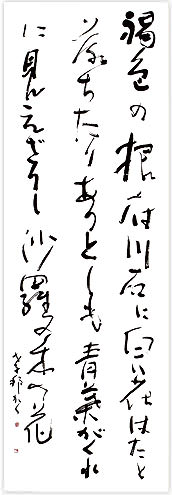 褐色の根府川石に白い花はたと
落ちたりありとしも青葉がくれ
に見えざりし沙羅の木の花